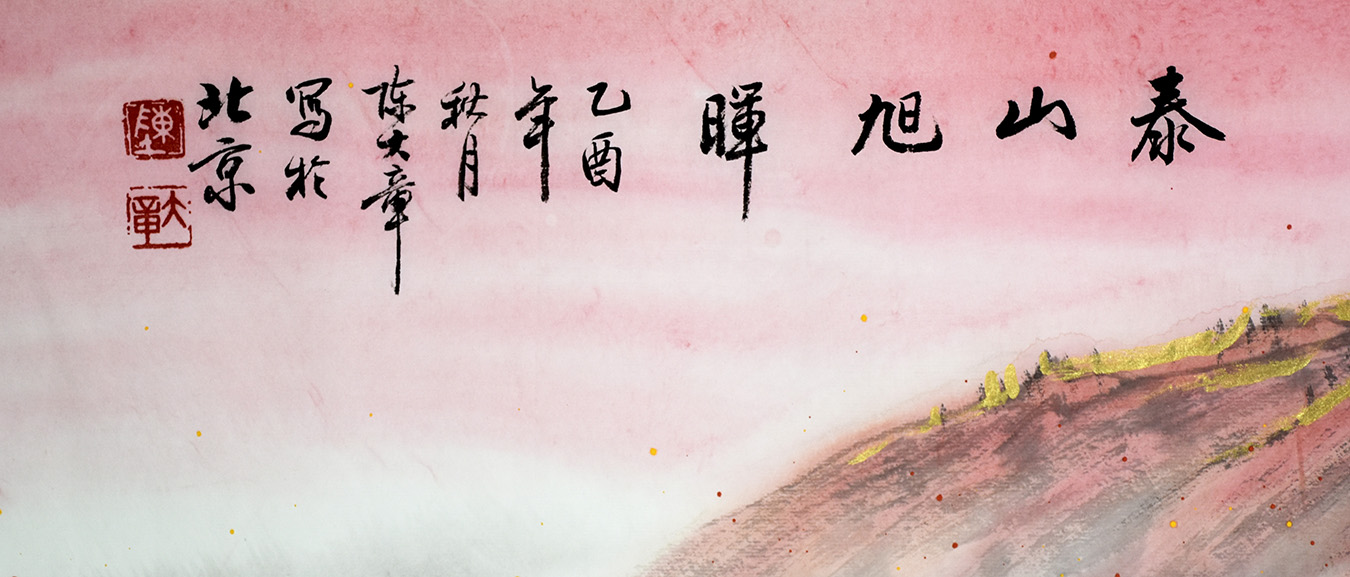 泰山旭暉
乙酉
年
秋月
陈大章
写於
北京
陳
大章